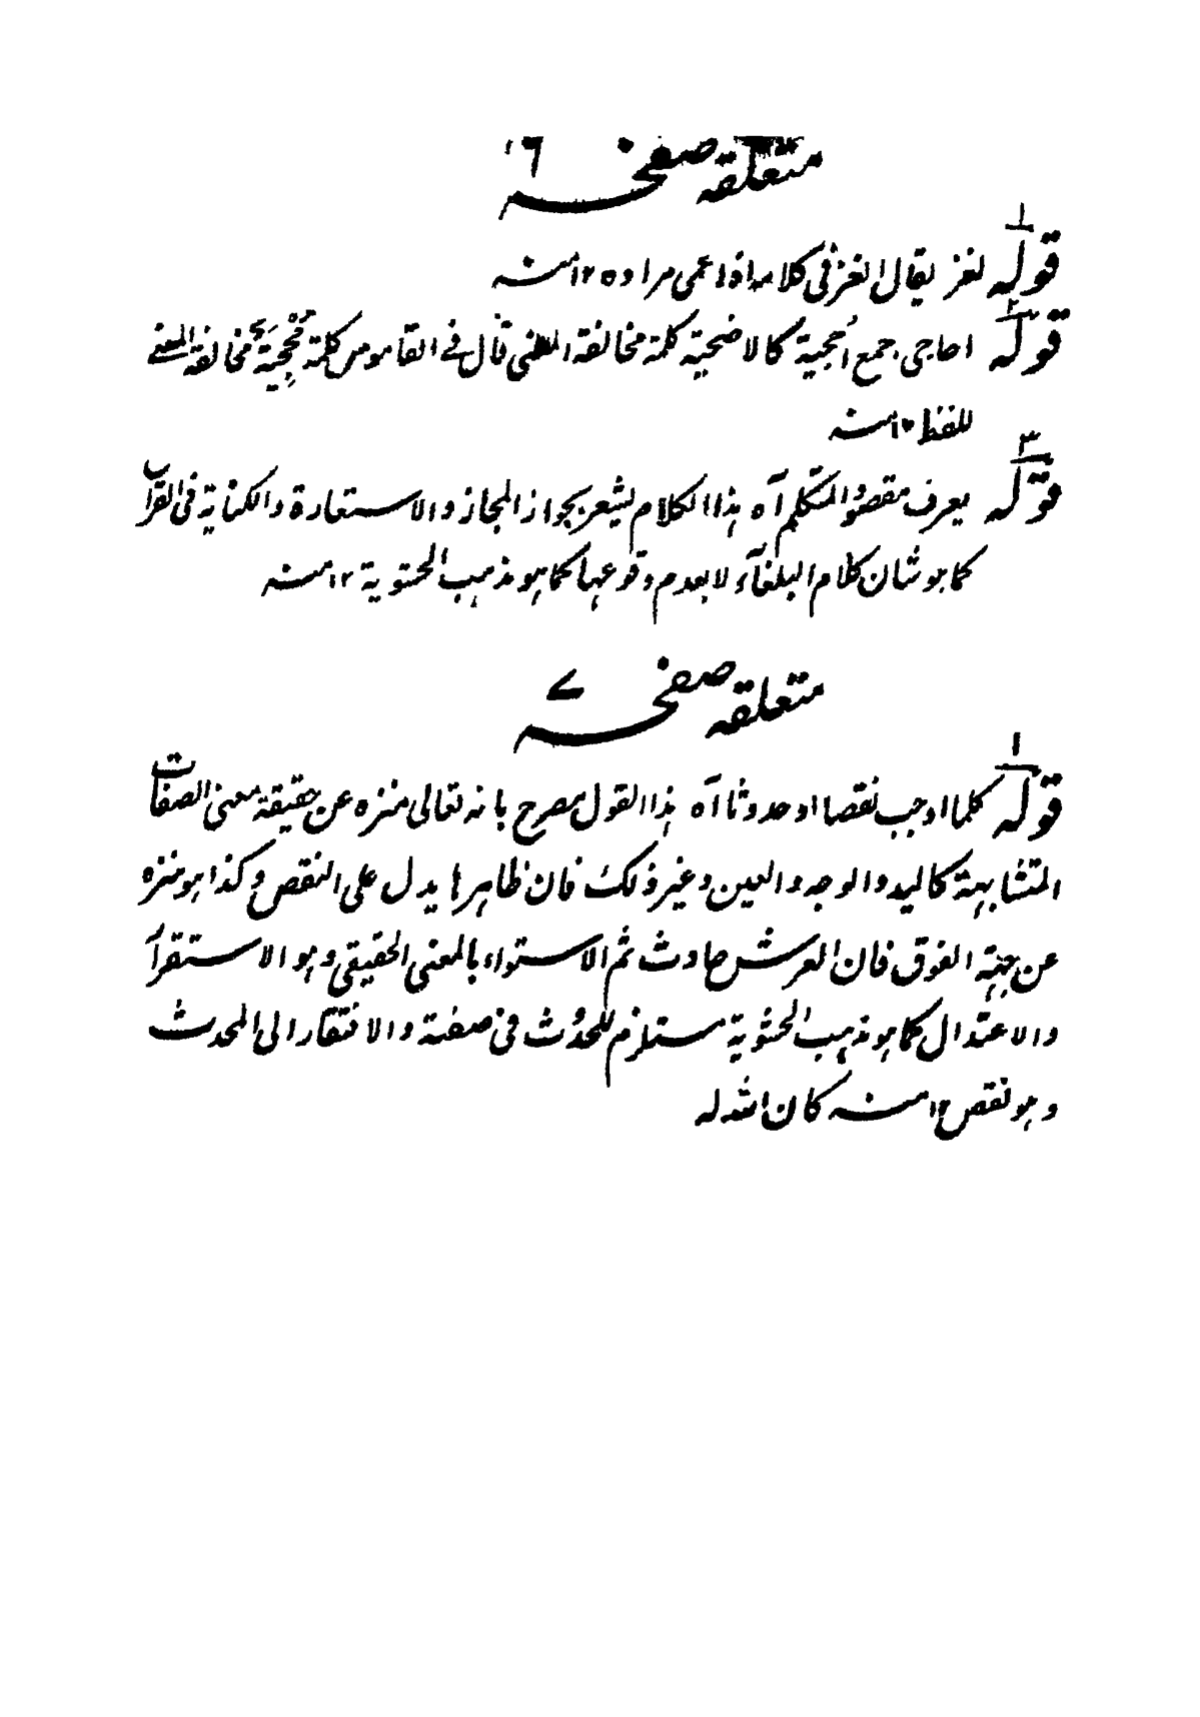 متعلقہ صفحہ ٦
١
قولہ لغز يقال الغز فی کلامہ اذا عمی مرادہ ١٢ منہ
٢
قولہ احاجی جمع اُحجیة کالاضحیة کلمة مخالفة المعنی قال فی القاموس کلمة مُحْجِیَة مخالفة المعنی
للفظ ١٢ منہ
٣
قولہ یعرف مقصود المتکلم آہ ہذا الکلام یشعر بجواز المجاز والاستعارة والکنایة فی القرآن
کما ہو شان کلام البلغآء لا بعدم وقوعہا کما ہو مذہب الحشویة ١٢ منہ
متعلقہ صفحہ ٧
١
قولہ کلما اوجب نقصا او حدوثا آہ ہذا القول مصرح بانہ تعالی منزہ عن حقیقة معنی الصفات
المتشابہة کالید والوجہ والعین وغیر ذلک فان ظاہرہا یدل علی النقص وکذا ہو منزہ
عن جہة الفوق فان العرش حادث ثم الاستواء بالمعنی الحقیقی وہو الاستقرآ
والاعتدال کما ہو مذہب الحشویة مستلزم للحدُوث فی صفتة والافتقار الی المحدث
وہو نقص ١٢ منہ کان اللہ لہ